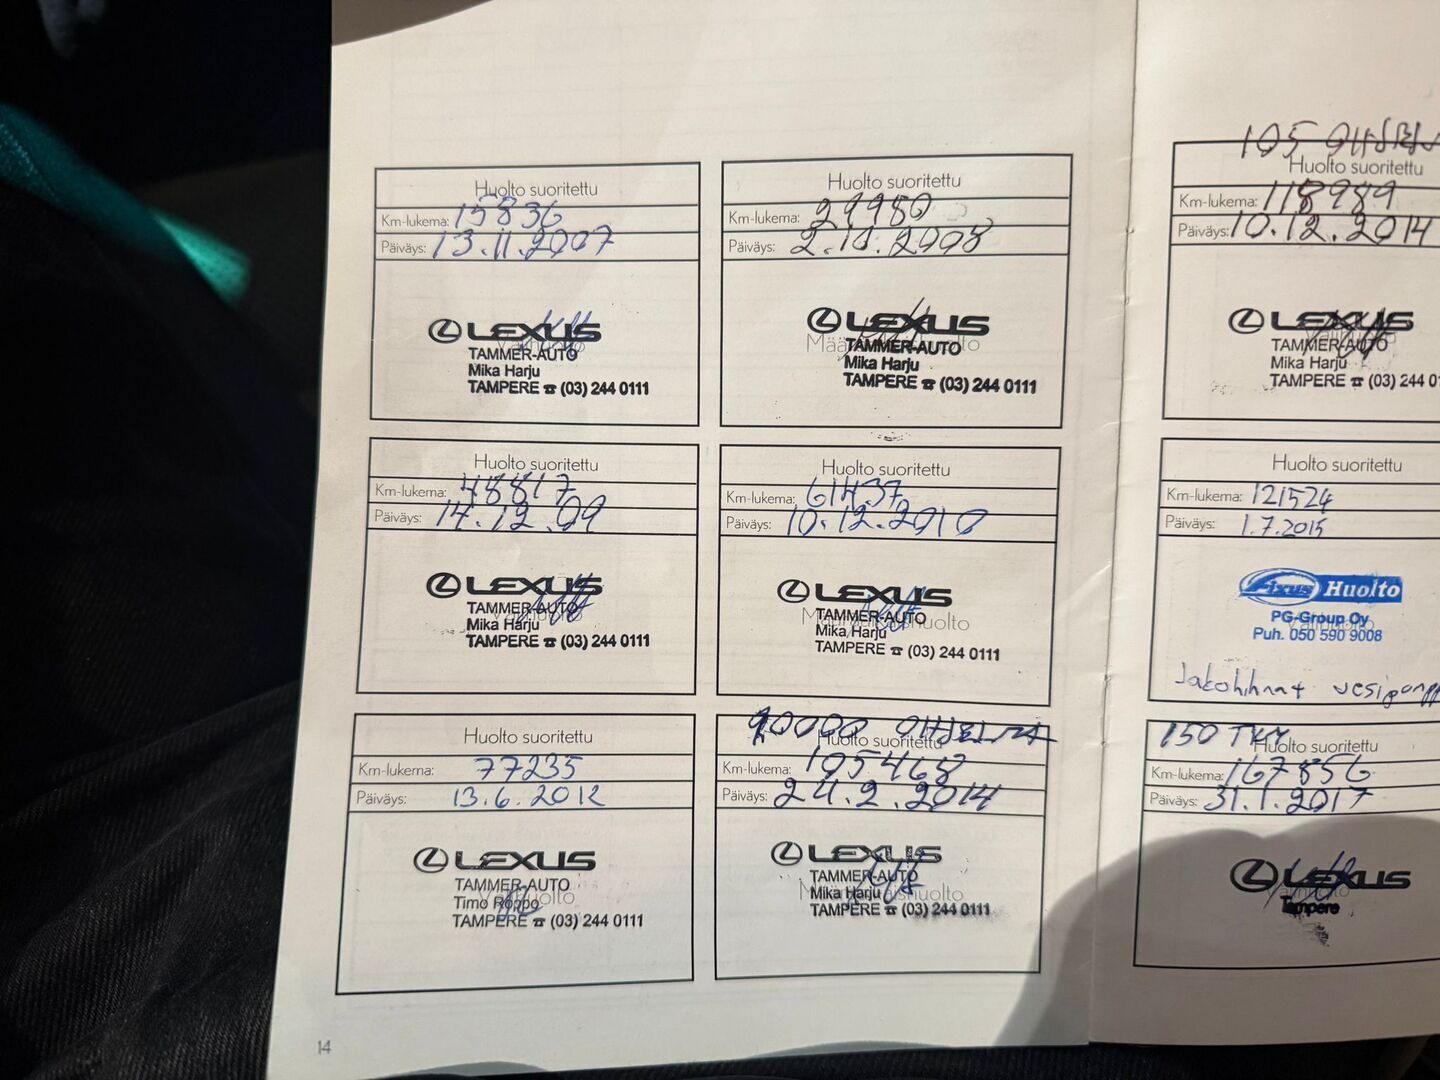 Huolto suoritettu
Km-lukema: 15836
Päiväys: 13.11.2007
LEXUS
Välihuolto
TAMMER-AUTO
Mika Harju
TAMPERE ☎ (03) 244 0111
Huolto suoritettu
Km-lukema: 29980
Päiväys: 2.10.2008
LEXUS
TAMMER-AUTO
Mika Harju
TAMPERE ☎ (03) 244 0111
Huolto suoritettu
Km-lukema: 48817
Päiväys: 14.12.09
LEXUS
TAMMER-AUTO
Välihuolto
Mika Harju
TAMPERE ☎ (03) 244 0111
Huolto suoritettu
Km-lukema: 61437
Päiväys: 10.12.2010
LEXUS
TAMMER-AUTO
Määräaikaishuolto
Mika Harju
TAMPERE ☎ (03) 244 0111
Huolto suoritettu
Km-lukema: 77235
Päiväys: 13.6.2012
LEXUS
TAMMER-AUTO
Välihuolto
Timo Roppo
TAMPERE ☎ (03) 244 0111
90000
Huolto suoritettu
Km-lukema: 105468
Päiväys: 24.2.2014
LEXUS
TAMMER-AUTO
Määräaikaishuolto
Mika Harju
TAMPERE ☎ (03) 244 0111
14
105
Huolto suoritettu
Km-lukema: 118989
Päiväys: 10.12.2014
LEXUS
Välihuolto
TAMMER-AUTO
Mika Harju
TAMPERE ☎ (03) 244 0
Huolto suoritettu
Km-lukema: 121524
Päiväys: 1.7.2015
Fixus Huolto
PG-Group Oy
Välihuolto
Puh. 050 590 9008
Jakohihnat vesipump
150 TKM
Huolto suoritettu
Km-lukema: 167856
Päiväys: 31.1.2017
LEXUS
Välihuolto
Tampere